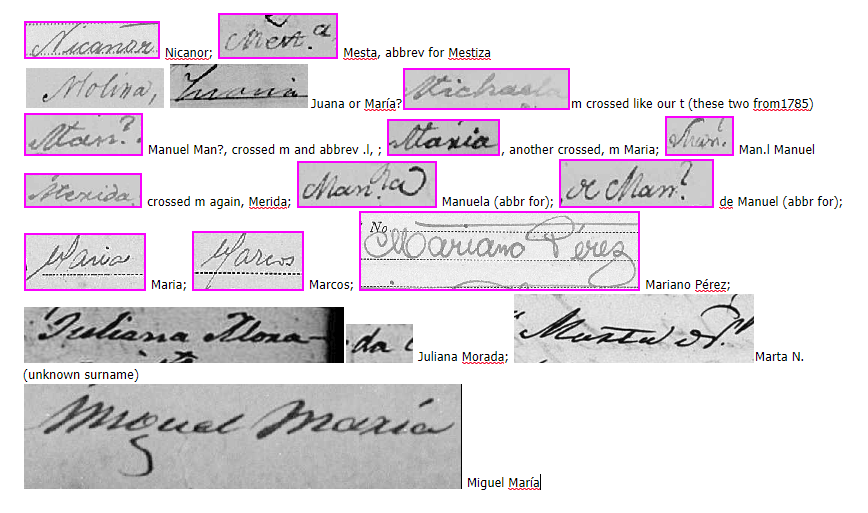 Nicanor Nicanor; Mest.a Mesta, abbrev for Mestiza
Molina, Juana or María? Michaela m crossed like our t (these two from1785)
Man.l Manuel Man?, crossed m and abbrev .l, ; Maria, another crossed, m Maria; Man.l Man.l Manuel
Merida. crossed m again, Merida; Man.la Manuela (abbr for); de Man.l de Manuel (abbr for);
Maria Maria; Marcos Marcos; No. Mariano Pérez Mariano Pérez;
Juliana Mora- da Juliana Morada; "Marta N." Marta N.
(unknown surname)
Miguel María Miguel María